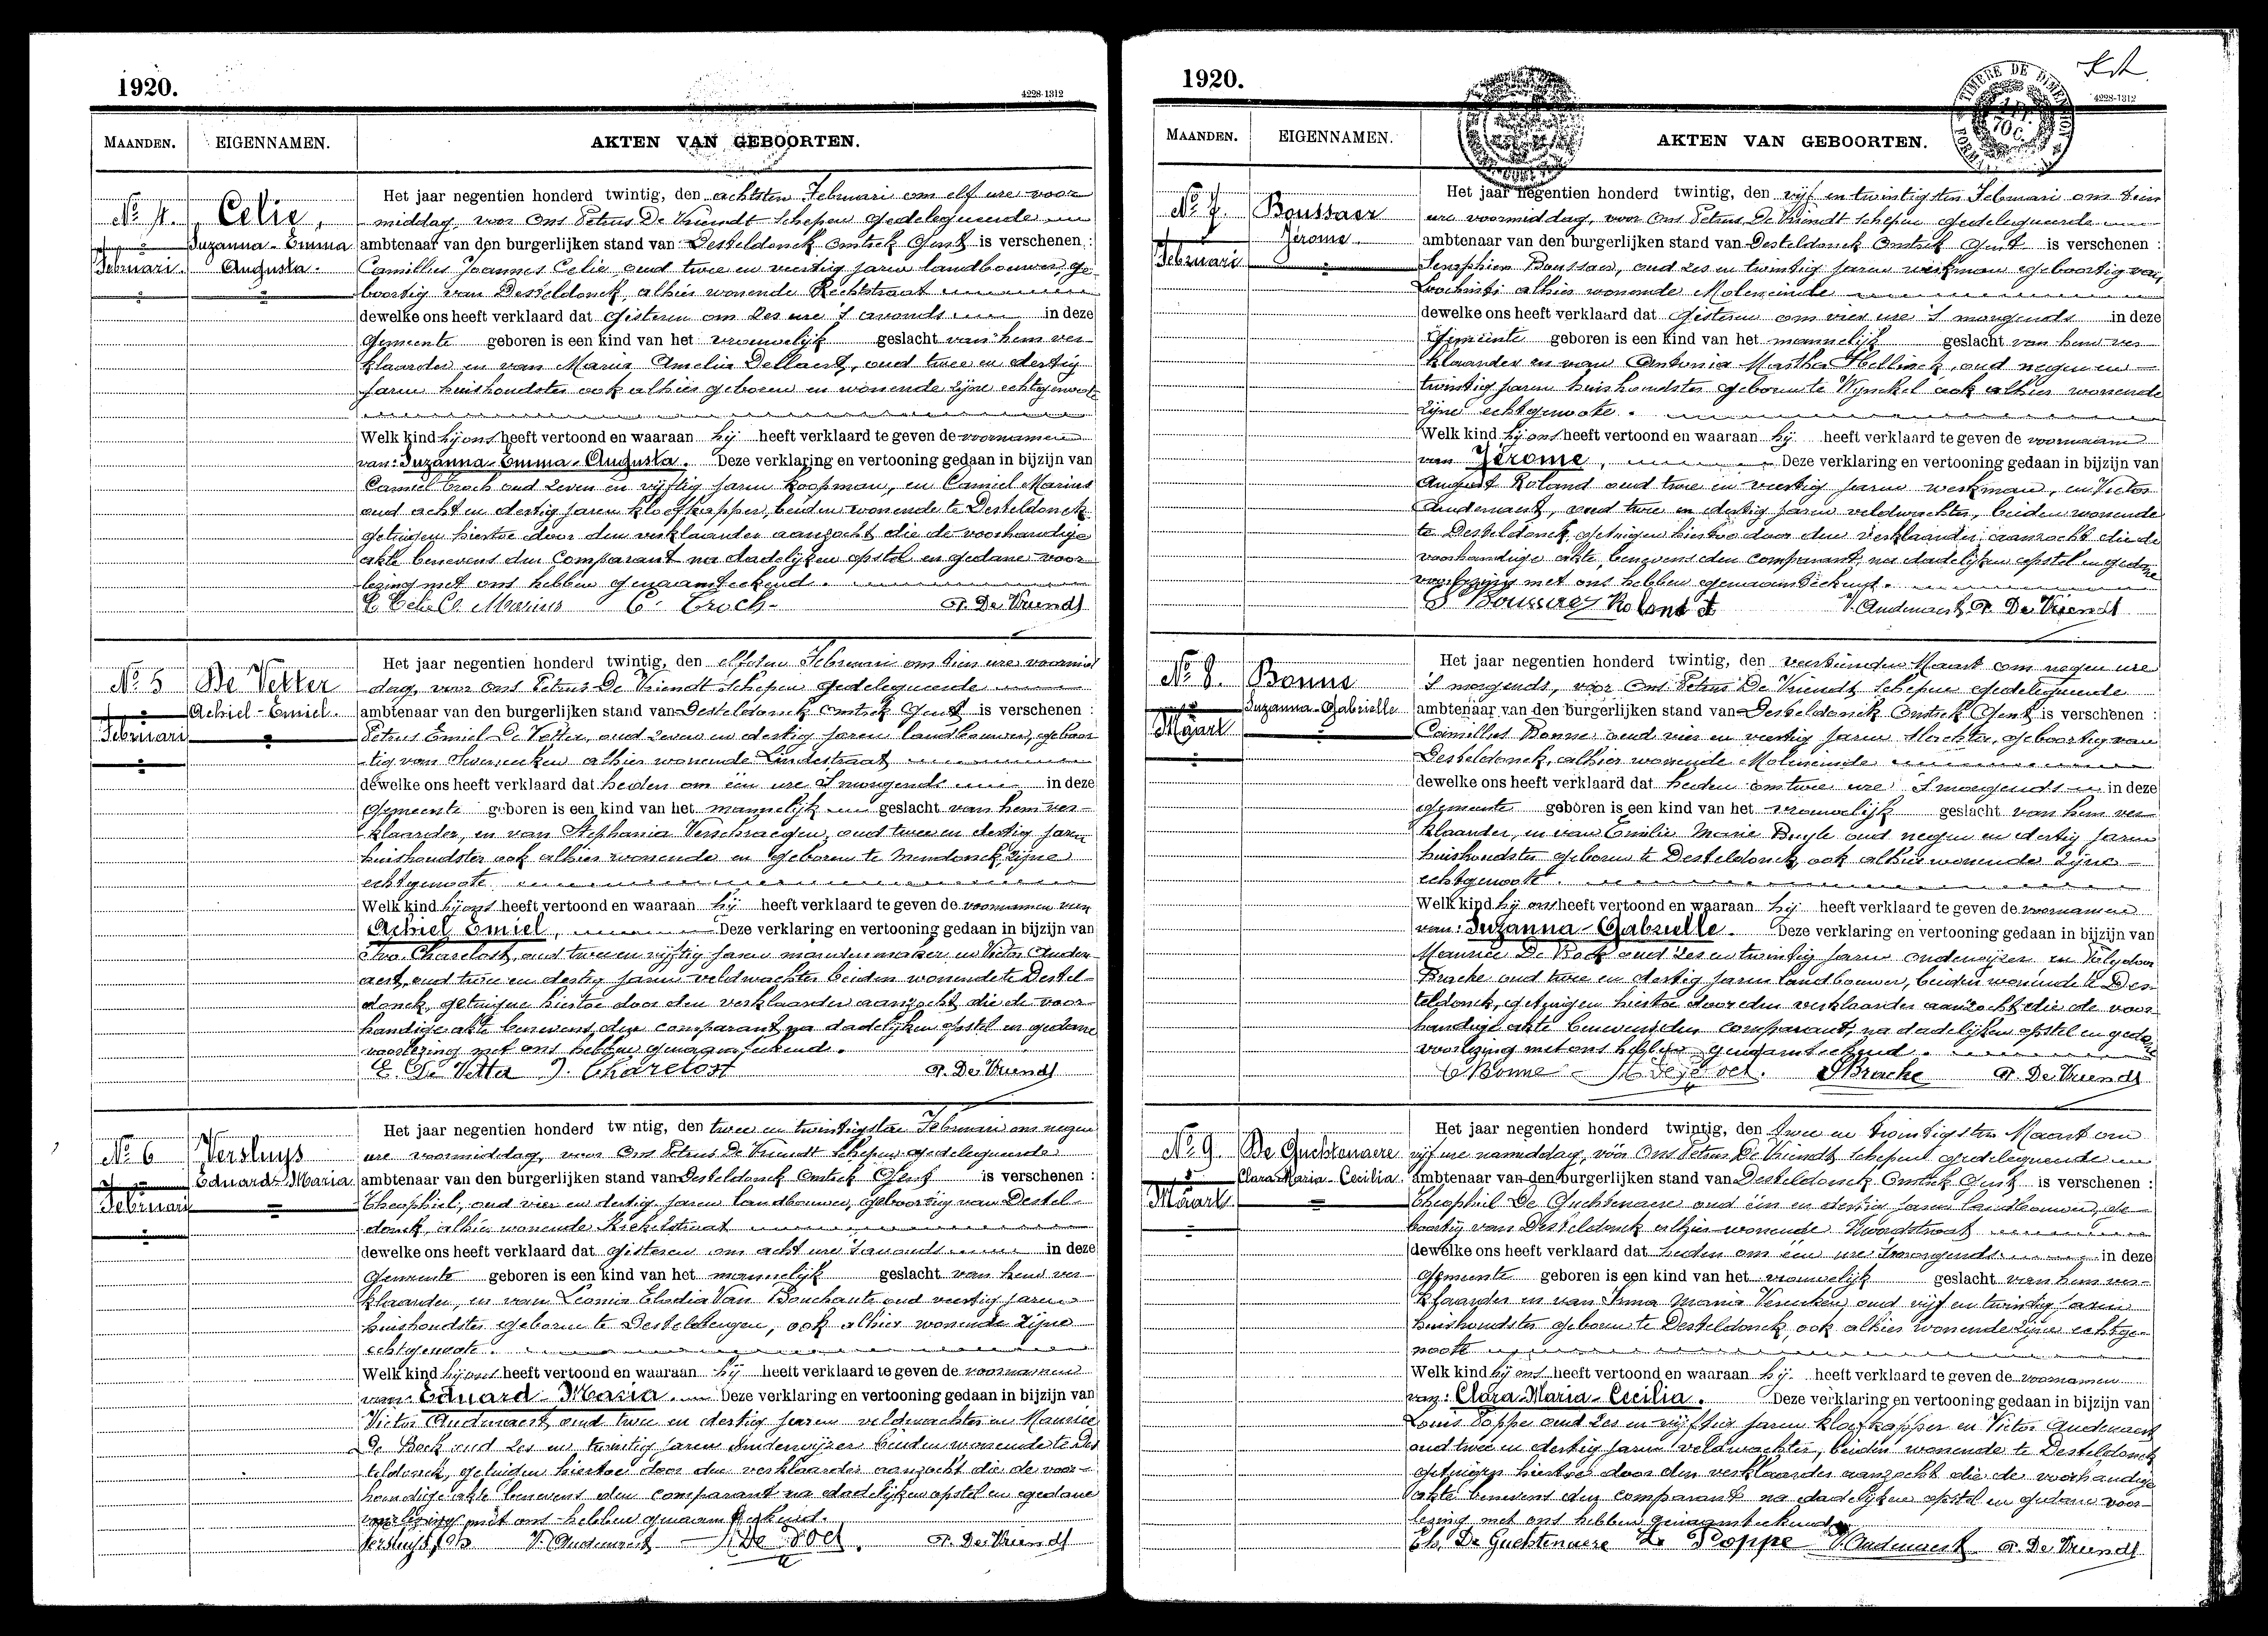 1920.
4228-1312
MAANDEN.
EIGENNAMEN.
AKTEN VAN GEBOORTEN.
No 4.
Celie,
Suzanna - Emma
Augusta.
Februari.
Het jaar negentien honderd twintig, den achtsten Februari om elf ure voor
middag, voor Ons Petrus De Vriendt Schepen gedelegueerde
ambtenaar van den burgerlijken stand van Desteldonck Omtrek Gent is verschenen :
Camillus Joannes Celie, oud twee en veertig jaren landbouwer, ge-
boortig van Desteldonck, alhier wonende Rechtstraat
dewelke ons heeft verklaard dat gisteren om zes ure 's avonds in deze
Gemeente geboren is een kind van het vrouwelijk geslacht van hem ver-
klaarder en van Maria Amelia Dellaert, oud twee en dertig
jaren huishoudster ook alhier geboren en wonende zijne echtgenoote
Welk kind hij ons heeft vertoond en waaraan hij heeft verklaard te geven de voornamen
van: Suzanna-Emma-Augusta. Deze verklaring en vertooning gedaan in bijzijn van
Camiel Troch oud zeven en vijftig jaren koopman, en Camiel Marius
oud acht en dertig jaren kloefkapper, beiden wonende te Desteldonck
getuigen hiertoe door den verklaarder aanzocht die de voorhandige
akte benevens den Comparant na dadelijken opstel en gedane voor
lezing met ons hebben genaamteekend.
C. Celie C. Marius C. Troch. P. De Vriendt
No 5
De Vetter
Achiel - Emiel.
Februari
Het jaar negentien honderd twintig, den elfsten Februari om tien ure voormid
dag, voor Ons Petrus De Vriendt Schepen gedelegueerde
ambtenaar van den burgerlijken stand van Desteldonck Omtrek Gent is verschenen :
Petrus Emiel De Vetter, oud zeven en dertig jaren landbouwer, geboor
tig van alhier wonende Lindestraat
dewelke ons heeft verklaard dat heden om een ure 's morgends in deze
Gemeente geboren is een kind van het mannelijk geslacht van hem ver-
klaarder, en van Stephania Verschraegen, oud twee en dertig jaren
huishoudster ook alhier wonende en geboren te Mendonck, zijne
echtgenoote
Welk kind hij ons heeft vertoond en waaraan hij heeft verklaard te geven de voornamen van
Achiel Emiel, Deze verklaring en vertooning gedaan in bijzijn van
Ivo Charelost, oud twee en vijftig jaren mandenmaker en Victor Auden-
aert, oud twee en dertig jaren veldwachter beiden wonende te Destel-
donck, getuigen hiertoe door den verklaarder aanzocht die de voor-
handige akte benevens den comparant na dadelijken opstel en gedane
voorlezing met ons hebben genaamteekend.
E. De Vetter J. Charelost P. De Vriendt
No 6
Versluys
Eduard-Maria
Februari
Het jaar negentien honderd twintig, den twee en twintigsten Februari om negen
ure voormiddag, voor Ons Petrus De Vriendt Schepen gedelegueerde
ambtenaar van den burgerlijken stand van Desteldonck Omtrek Gent is verschenen :
Theophiel, oud vier en dertig jaren landbouwer, geboortig van Destel-
donck, alhier wonende Kiekelstraat
dewelke ons heeft verklaard dat gisteren om acht ure 's avonds in deze
Gemeente geboren is een kind van het mannelijk geslacht van hem ver-
klaarder, en van Leonia Elodia Van Bouchaute oud veertig jaren
huishoudster geboren te Destelbergen, ook alhier wonende zijne
echtgenoote.
Welk kind hij ons heeft vertoond en waaraan hij heeft verklaard te geven de voornamen
van: Eduard-Maria. Deze verklaring en vertooning gedaan in bijzijn van
Victor Audenaert oud twee en dertig jaren veldwachter en Maurice
De Bock oud zes en twintig jaren onderwijzer beiden wonende te Des
teldonck, getuigen hiertoe door den verklaarder aanzocht die de voor-
handige akte benevens den comparant na dadelijken opstel en gedane
voorlezing met ons hebben genaamteekend.
Versluys V. Audenaert De Bock. P. De Vriendt
1920.
TIMBRE DE DIMENSION
4228-1312
MAANDEN.
EIGENNAMEN.
AKTEN VAN GEBOORTEN.
No 7.
Boussaer
Jérome.
Februari
Het jaar negentien honderd twintig, den vijf en twintigsten Februari om tien
ure voormiddag, voor Ons Petrus De Vriendt Schepen gedelegueerde
ambtenaar van den burgerlijken stand van Desteldonck Omtrek Gent is verschenen :
Seraphien Boussaer, oud zes en twintig jaren werkman geboortig van
Loochristi alhier wonende Moleneinde
dewelke ons heeft verklaard dat gisteren om vier ure 's morgends in deze
Gemeente geboren is een kind van het mannelijk geslacht van hem ver
klaarder en van Antonia Martha Hellinck, oud negen en
twintig jaren huishoudster geboren te Wynkel ook alhier wonende
zijne echtgenoote.
Welk kind hij ons heeft vertoond en waaraan hij heeft verklaard te geven de voornaam
van Jérome, Deze verklaring en vertooning gedaan in bijzijn van
August Roland oud twee en veertig jaren werkman, en Victor
Audenaert, oud twee en dertig jaren veldwachter, beiden wonende
te Desteldonck, getuigen hiertoe door den verklaarder aanzocht die de
voorhandige akte, benevens den comparant, na dadelijken opstel en gedane
voorlezing met ons hebben genaamteekend.
Roland A V. Audenaert P. De Vriendt
No 8.
Bonne
Suzanna-Gabrielle
Maart
Het jaar negentien honderd twintig, den veertienden Maart om negen ure
's morgends, voor Ons Petrus De Vriendt Schepen gedelegueerde
ambtenaar van den burgerlijken stand van Desteldonck Omtrek Gent is verschenen :
Camillus Bonne oud vier en veertig jaren slachter, geboortig van
Desteldonck, alhier wonende Moleneinde
dewelke ons heeft verklaard dat heden om twee ure 's morgends in deze
gemeente geboren is een kind van het vrouwelijk geslacht van hem ver
klaarder, en van Emilie Marie Buyle oud negen en dertig jaren
huishoudster geboren te Desteldonck, ook alhier wonende zijne
echtgenoote.
Welk kind hij ons heeft vertoond en waaraan hij heeft verklaard te geven de voornamen
van: Suzanna-Gabrielle. Deze verklaring en vertooning gedaan in bijzijn van
Maurice De Bock oud zes en twintig jaren onderwijzer en Polydoor
Brache oud twee en dertig jaren landbouwer, beiden wonende te Des
teldonck, getuigen hiertoe door den verklaarder aanzocht die de voor
handige akte benevens den comparant, na dadelijken opstel en gedane
voorlezing met ons hebben genaamteekend.
C Bonne Brache P. De Vriendt
No 9.
De Guchtenaere
Clara-Maria-Cecilia
Maart
Het jaar negentien honderd twintig, den twee en twintigsten Maart om
vijf ure namiddag, vóór Ons Petrus De Vriendt Schepen gedelegueerde
ambtenaar van den burgerlijken stand van Desteldonck Omtrek Gent is verschenen :
Theophiel De Guchtenaere oud een en dertig jaren landbouwer, ge-
boortig van Desteldonck alhier wonende Noordstraat
dewelke ons heeft verklaard dat heden om een ure 's morgends in deze
Gemeente geboren is een kind van het vrouwelijk geslacht van hem ver-
klaarder en van Irma Maria Vereecken, oud vijf en twintig jaren
huishoudster geboren te Desteldonck, ook alhier wonende zijne echtge-
noote
Welk kind hij ons heeft vertoond en waaraan hij heeft verklaard te geven de voornamen
van: Clara-Maria-Cecilia. Deze verklaring en vertooning gedaan in bijzijn van
Louis Poppe oud zes en vijftig jaren kloefkapper en Victor Audenaert
oud twee en dertig jaren veldwachter, beiden wonende te Desteldonck
getuigen hiertoe door den verklaarder aanzocht die de voorhandige
akte benevens den comparant na dadelijken opstel en gedane voor-
lezing met ons hebben genaamteekend.
Th. De Guchtenaere L. Poppe V. Audenaert P. De Vriendt